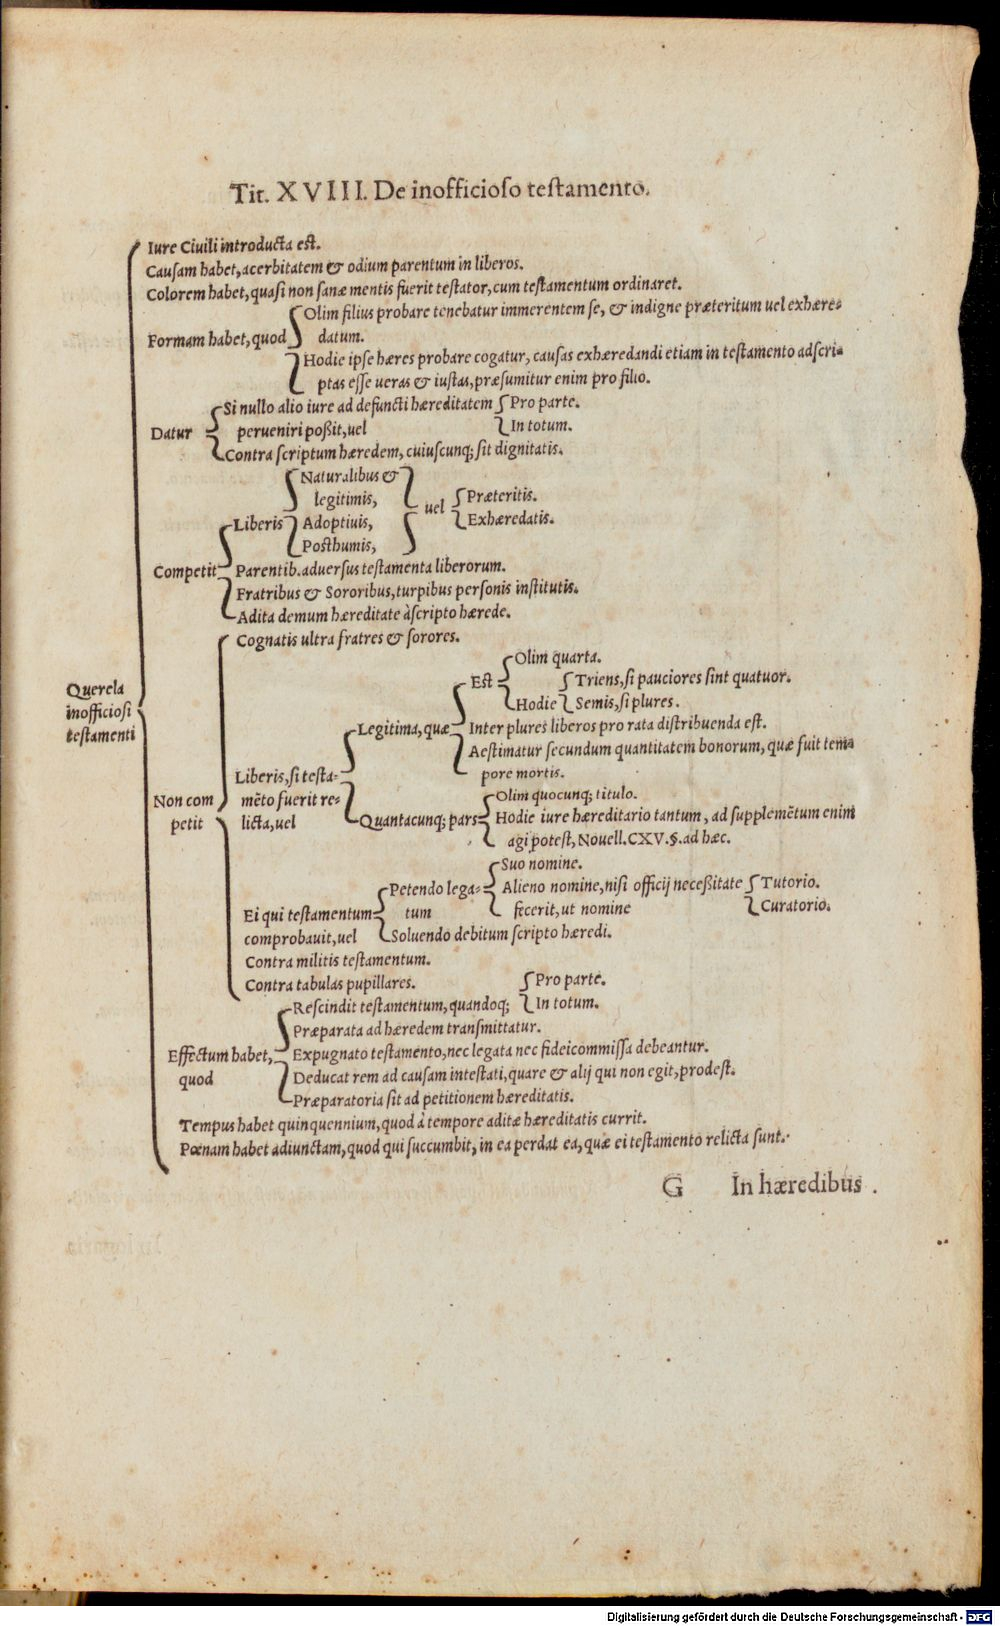 Tit. XVIII. De inofficioso testamento.
Iure Ciuili introducta est.
Causam habet, acerbitatem & odium parentum in liberos.
Colorem habet, quasi non sanæ mentis fuerit testator, cum testamentum ordinaret.
Olim filius probare tenebatur immerentem se, & indigne præteritum uel exhære-
Formam habet, quod
datum.
Hodie ipse hæres probare cogatur, causas exhæredandi etiam in testamento adscri-
ptas esse ueras & iustas, præsumitur enim pro filio.
Si nullo alio iure ad defuncti hæreditatem
Pro parte.
Datur
perueniri poßit, uel
In totum.
Contra scriptum hæredem, cuiuscunq; sit dignitatis.
Naturalibus &
legitimis,
uel
Præteritis.
Liberis
Adoptiuis,
Exhæredatis.
Posthumis,
Competit
Parentib. aduersus testamenta liberorum.
Fratribus & Sororibus, turpibus personis institutis.
Adita demum hæreditate à scripto hærede.
Cognatis ultra fratres & sorores.
Olim quarta.
Est
Triens, si pauciores sint quatuor.
Querela
inofficiosi
testamenti
Hodie
Semis, si plures.
Legitima, quæ
Inter plures liberos pro rata distribuenda est.
Aestimatur secundum quantitatem bonorum, quæ fuit tem-
Liberis, si testa-
pore mortis.
Non com
petit
mẽto fuerit re-
Olim quocunq; titulo.
licta, uel
Quantacunq; pars
Hodie iure hæreditario tantum, ad supplemẽtum enim
agi potest, Nouell. CXV. §. ad hæc.
Suo nomine.
Petendo lega-
Alieno nomine, nisi officij neceßitate
Tutorio.
Ei qui testamentum
tum
fecerit, ut nomine
Curatorio.
comprobauit, uel
Soluendo debitum scripto hæredi.
Contra militis testamentum.
Contra tabulas pupillares.
Pro parte.
Rescindit testamentum, quandoq;
In totum.
Præparata ad hæredem transmittatur.
Effectum habet,
quod
Expugnato testamento, nec legata nec fideicommissa debeantur.
Deducat rem ad causam intestati, quare & alij qui non egit, prodest.
Præparatoria sit ad petitionem hæreditatis.
Tempus habet quinquennium, quod à tempore aditæ hæreditatis currit.
Pœnam habet adiunctam, quod qui succumbit, in ea perdat ea, quæ ei testamento relicta sunt.
G In hæredibus.
Digitalisierung gefördert durch die Deutsche Forschungsgemeinschaft - DFG